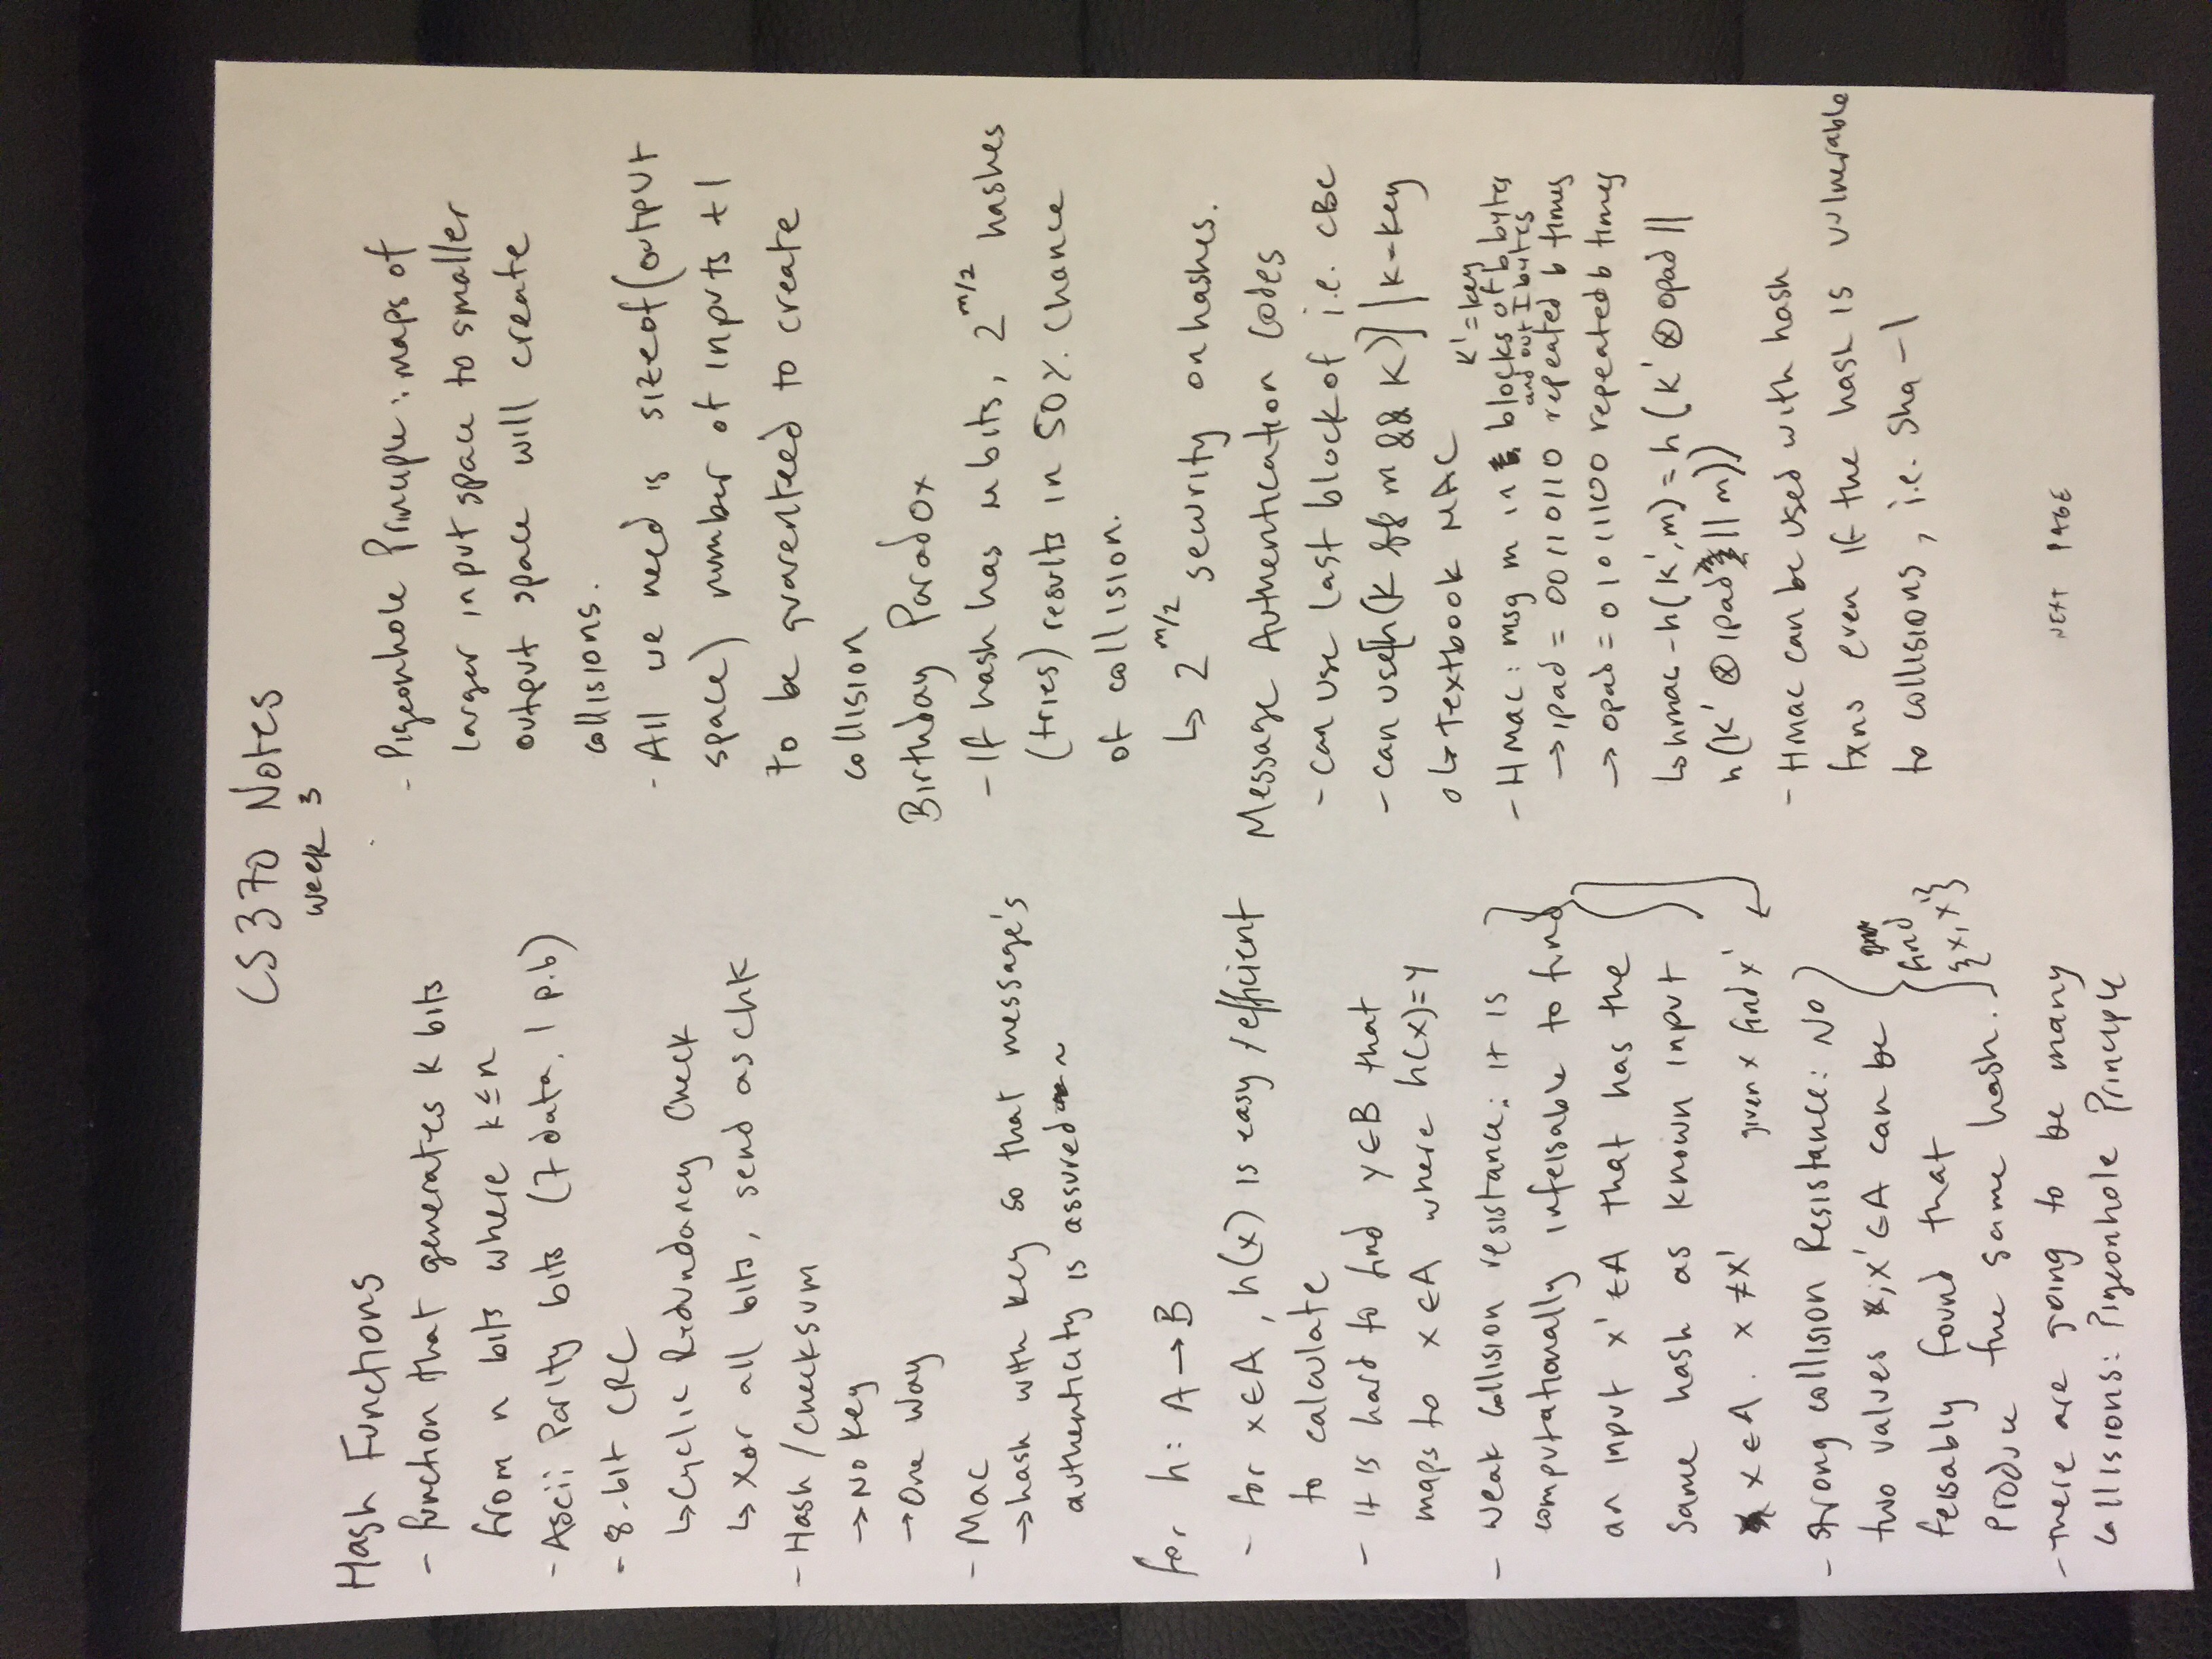 CS 370 Notes
week 3
Hash Functions
- function that generates k bits
from n bits where k ≤ n
- Ascii Parity bits (7 data, 1 p.b)
- 8-bit CRC
↳ Cyclic Redundancy Check
↳ Xor all bits, send as chk
- Hash / checksum
→ No key
→ One Way
- Mac
→ hash with key so that message's
authenticity is assured
for h: A → B
- for x ∈ A, h(x) is easy / efficient
to calculate
- it is hard to find y ∈ B that
maps to x ∈ A where h(x) = y
- weak collision resistance: it is
computationally infeisable to find
an input x' ∈ A that has the
same hash as known input
x ∈ A. x ≠ x' given x find x'
- strong collision Resistance: No
two values x, x' ∈ A can be
feisably found that
produce the same hash.
find
{x, x'}
- There are going to be many
collisions: Pigeonhole Principle
- Pigeonhole Principle: maps of
larger input space to smaller
output space will create
collisions.
- All we need is sizeof(output
space) number of inputs +1
to be guarenteed to create
collision
Birthday Paradox
- If hash has m bits, 2^m/2 hashes
(tries) results in 50% chance
of collision.
↳ 2^m/2 security on hashes.
Message Authentication Codes
- can use last block of i.e. CBC
- can use [h(K && m && K)] | K = key
↳ Textbook MAC
K' = key
- Hmac: msg m in blocks of b bytes
and out I bytes
→ ipad = 00110110 repeated b times
→ opad = 01011100 repeated b times
↳ hmac - h(K', m) = h(K' ⊗ opad ||
h(K' ⊗ ipad || m))
- Hmac can be used with hash
fxns even if the hash is vulnerable
to collisions, i.e. Sha-1
NEXT PAGE